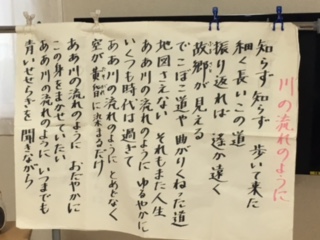 川の流れのように
知らず知らず 歩いて来た
細く長いこの道
振り返れば 遥か遠く
故郷が見える
でこぼこ道や 曲がりくねった道
地図さえない それもまた人生
ああ川の流れのように ゆるやかに
いくつも時代は過ぎて
ああ川の流れのように とめどなく
空が黄昏に 染まるだけ
ああ川の流れのように おだやかに
この身をまかせていたい
ああ川の流れのように いつまでも
青いせせらぎを 聞きながら